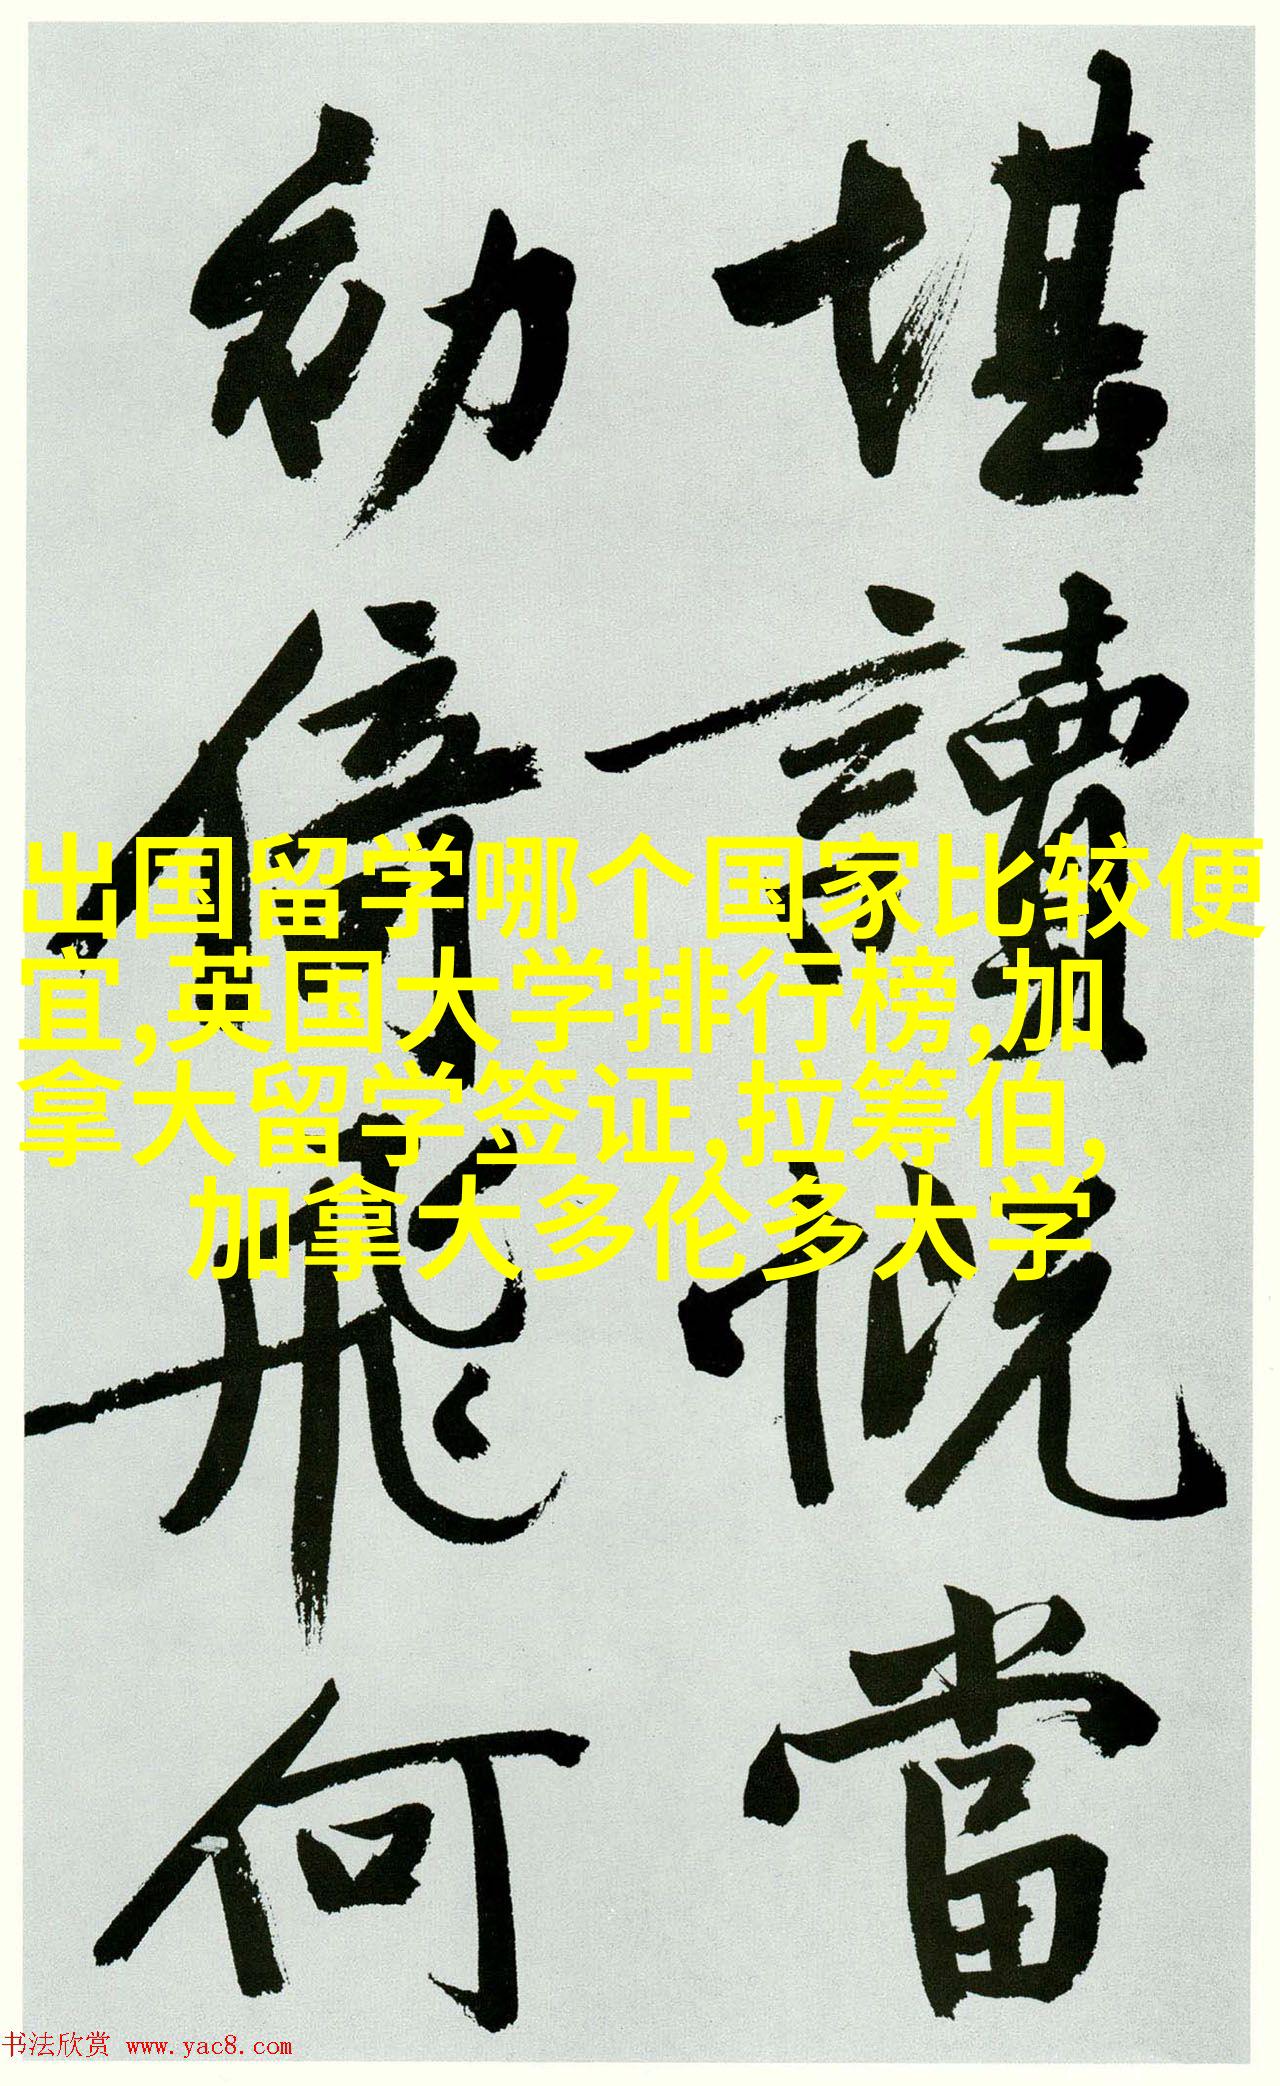 堪讀慨當
幼倚飛何
出国留学哪个国家比较便
宜,英国大学排行榜,加
拿大留学签证,拉筹伯,
加拿大多伦多大学
书法欣赏 www.yac8.com